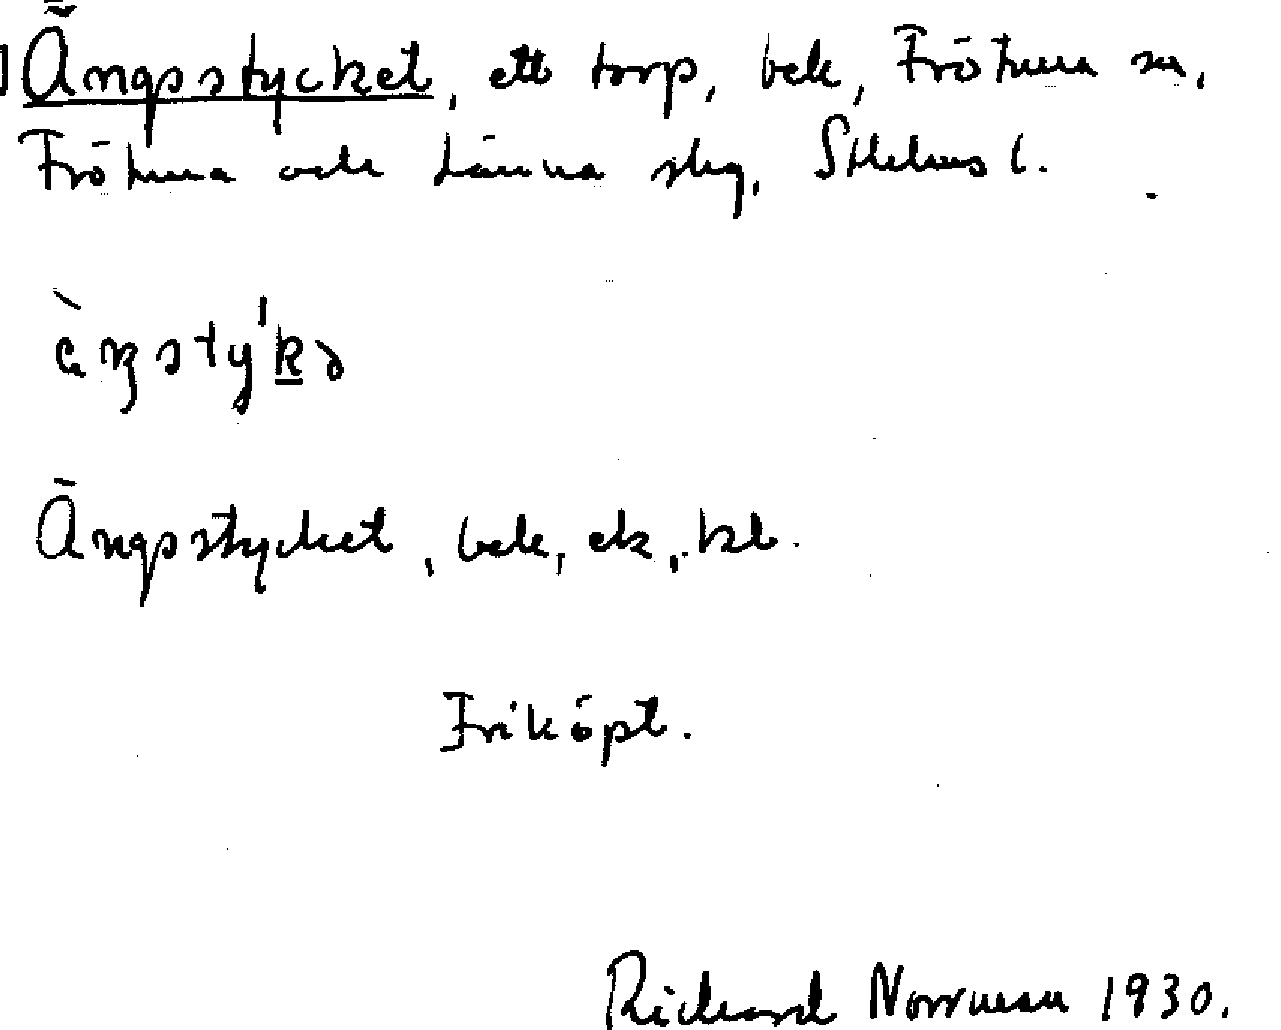 Ängsstycket, ett torp, bek, Frötuna sn,
Frötuna och Länna slg, Sthlms l.
Ängsstycket, bek, ek, kbl.
Friköpt.
Richard Norrman 1930.